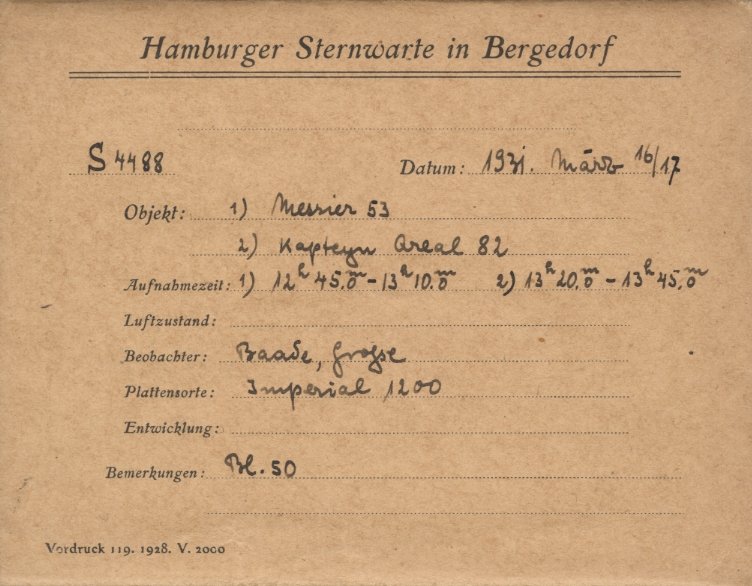 Hamburger Sternwarte in Bergedorf
S 4488 Datum: 1931. März 16/17
Objekt: 1) Messier 53
2) Kapteyn Areal 82
Aufnahmezeit: 1) 12h 45.m0 – 13h 10.m0 2) 13h 20.m0 – 13h 45.m0
Luftzustand:
Beobachter: Baade, Große
Plattensorte: Imperial 1200
Entwicklung:
Bemerkungen: Bl. 50
Vordruck 119. 1928. V. 2000